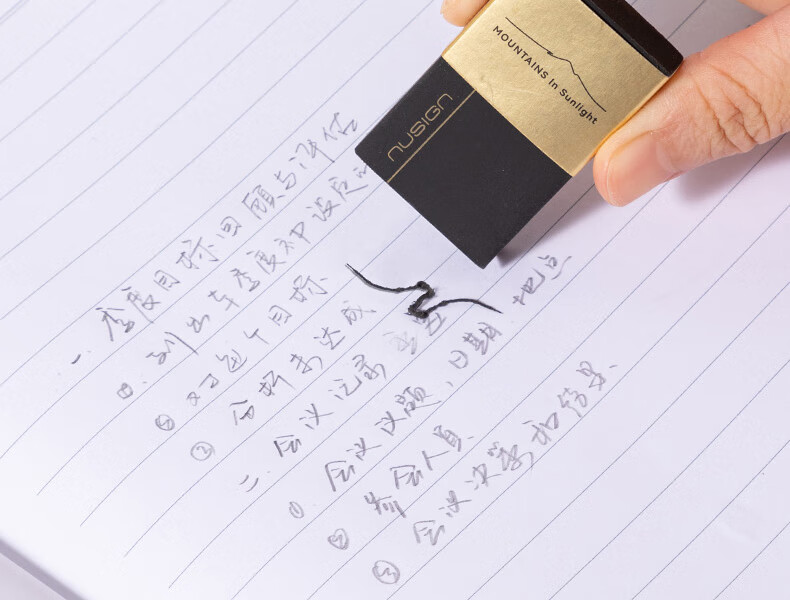 MOUNTAINS In Sunlight
NUSIGN
一、季度目标回顾与评估
列出本季度初设定
对每个目标
② 分析未达成
二、会议记录
① 会议议题，日期 地点
② 参会人员.
③ 会议决策和结果.